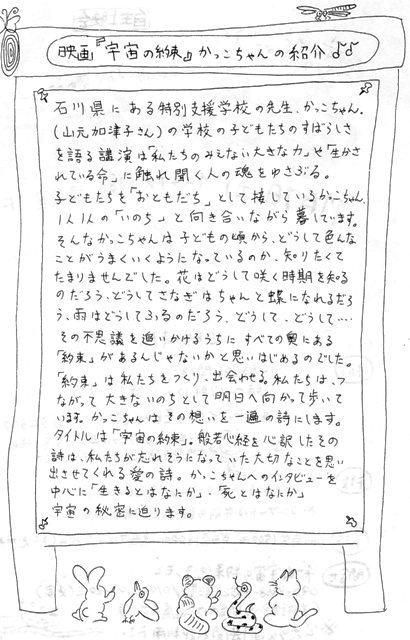 映画『宇宙の約束』かっこちゃんの紹介♪♪
石川県にある特別支援学校の先生、かっこちゃん。
(山元加津子さん)の学校の子どもたちのすばらしさ
を語る講演は「私たちのみえない大きな力」や「生かさ
れている命」に触れ聞く人の魂をゆさぶる。
子どもたちを「おともだち」として接しているかっこちゃん、
1人1人の「いのち」と向き合いながら暮しています。
そんなかっこちゃんは子どもの頃から、どうして色んな
ことがうまくいくようになっているのか、知りたくて
たまりませんでした。花はどうして咲く時期を知る
のだろう、どうしてさなぎはちゃんと蝶になれるだろ
う、雨はどうしてふるのだろう、どうして、どうして…
その不思議を追いかけるうちにすべての奥にある
「約束」があるんじゃないかと思いはじめるのでした。
「約束」は私たちをつくり、出会わせる。私たちは、つ
ながって大きないのちとして明日へ向かって歩いて
います。かっこちゃんはその想いを一遍の詩にします。
タイトルは「宇宙の約束」。般若心経を心訳したその
詩は、私たちが忘れそうになっていた大切なことを思い
出させてくれる愛の詩。かっこちゃんへのインタビューを
中心に「生きるとはなにか」・「死とはなにか」
宇宙の秘密に迫ります。